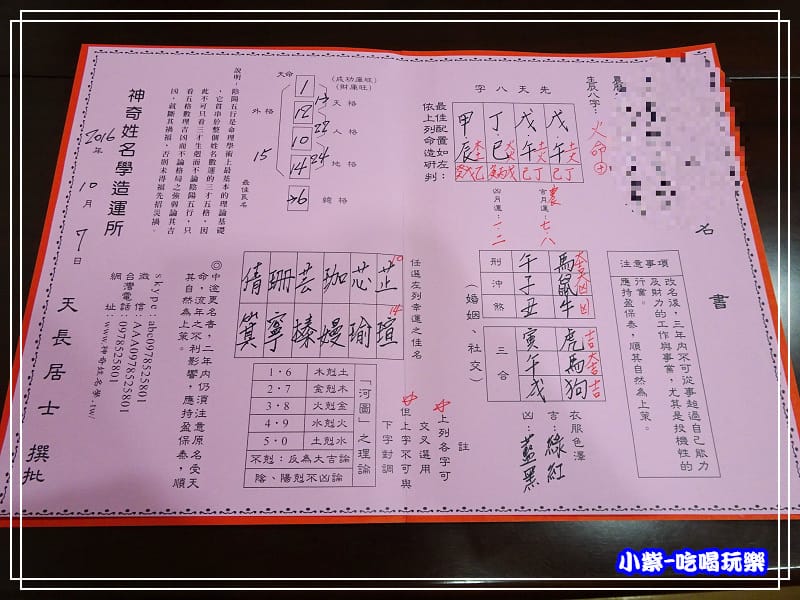 名
書
注意事項
改名後，三年内不可從事超過自己能力
及財力的工作與事業，尤其是投機性的
行業。
應持盈保泰，順其自然為上策。
生辰八字：火命
先天八字
戊 戊 丁 甲
午 午 巳 辰
最佳配置如左：
依上列命造研判
吉月運：七、八
農
凶月運：一、二
馬 午 刑
鼠 子 沖
牛 丑 煞
虎 寅
馬 午 三合
狗 戌
大凶
凶
吉
大吉
吉
（婚姻、社交）
衣服色澤
吉：綠紅
凶：藍黑
註
上列各字可
交叉選用
但上字不可與
下字對調
任選左列幸運之佳名
10
芷 芯 珈 芸 珊 倩
14
瑄 瑜 嫚 榛 寧 箕
「河圖」之理論
1·6 木剋土
2·7 金剋木
3·8 火剋金
4·9 水剋火
5·0 土剋水
不剋：反為大吉論
陰、陽剋不凶論
（成功運旺）
（財庫旺）
天命
1
12
10
14
26
13
22
24
15
天格
人格
地格
總格
外格
最佳良名
說明：陰陽五行是命理學術上最基本的理論基礎
，它貫串於整個姓名數運的三才五格，因
此不可只看三才生剋而不論陰陽五行，只
看五格數理吉凶而不論格局之強弱論其吉
凶，就斷其禍福，否則未得福先招災禍。
◎中途更名者，二年内仍須注意原名受天
命，流年之不利影響，應持盈保泰，順
其自然為上策。
神奇姓名學造運所
skype：abc0978525801
微信：AAA0978525801
台灣電話：0978525801
網址：www.神奇姓名學.tw/
2016年10月7日
天長居士 撰批
小紫-吃喝玩樂